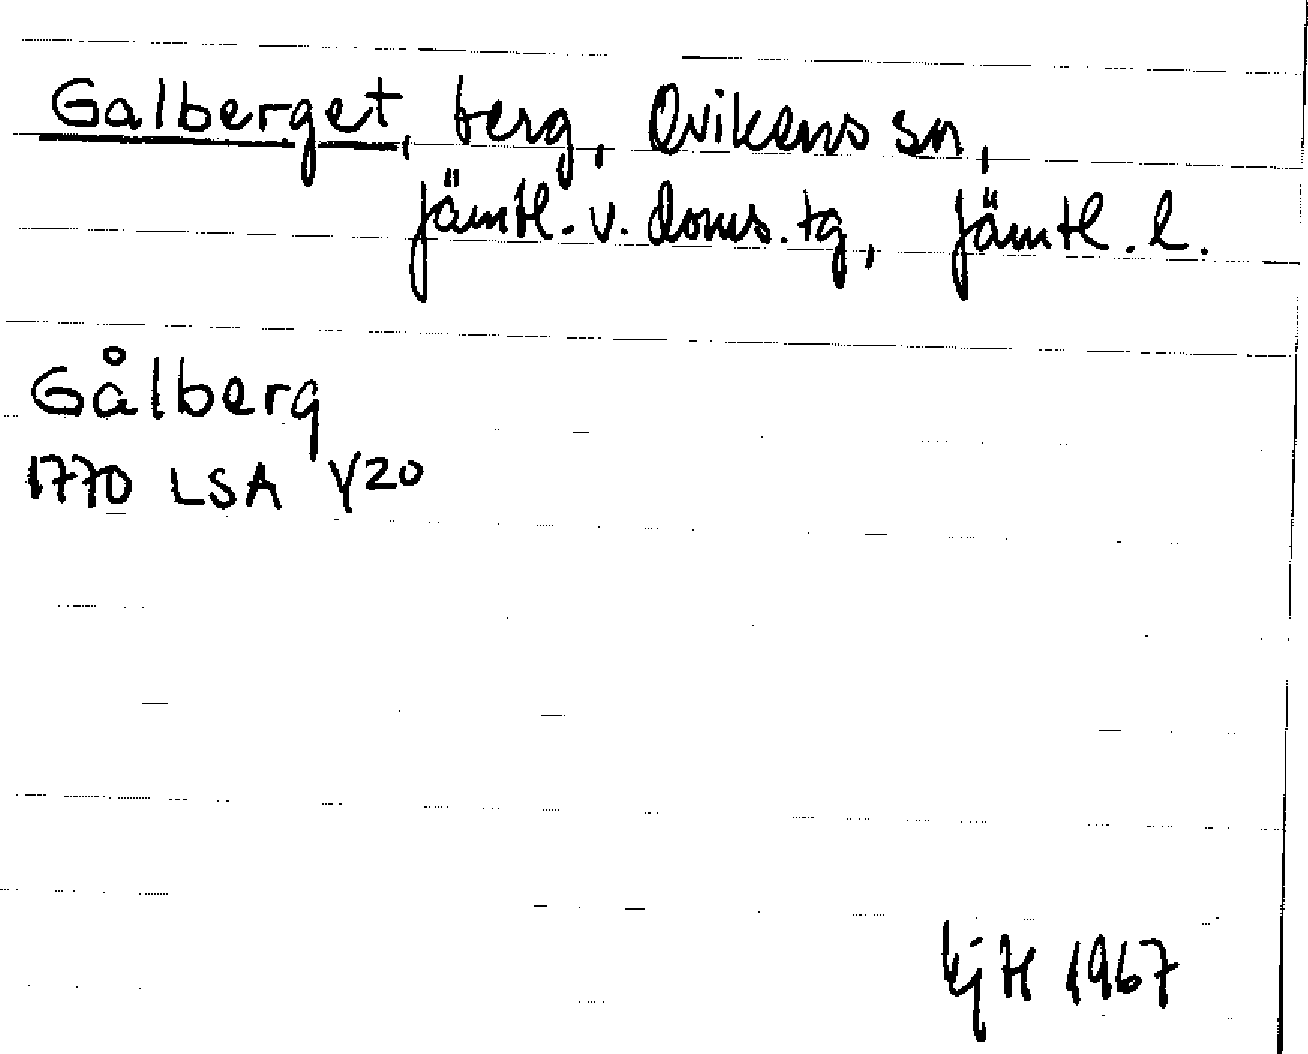 Galberget, berg, Ovikens sn,
Jämtl. v. doms. tg, Jämtl. l.
Gålberg
1770 LSA Y20
KjH 1967